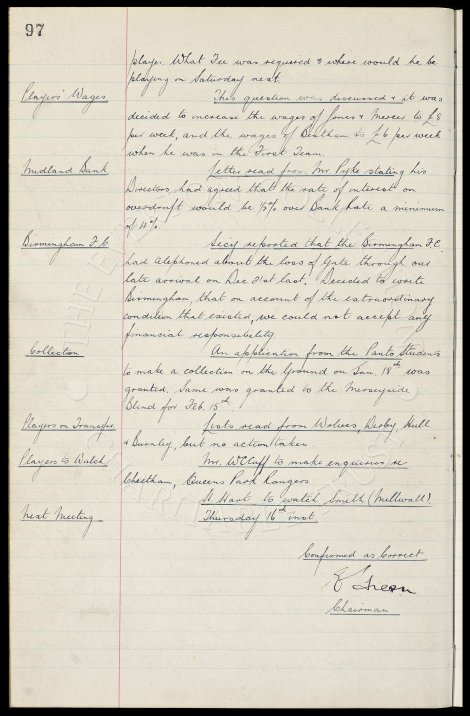 97
player. What Fee was required & where would he be
playing on Saturday next
Players' Wages
This question was discussed & it was
decided to increase the wages of Jones & Mercer to £8
per week, and the wages of Bentham to £6 per week
when he was in the First Team.
Midland Bank
Letter read from Mr. Pyke stating his
Directors had agreed that the rate of interest on
overdraft would be ½% over Bank Rate a minimum
of 4%
Birmingham F.C.
Secy reported that the Birmingham F.C.
had telephoned about the loss of Gate through our
late arrival on Dec 31st last. Decided to write
Birmingham, that on account of the extraordinary
condition that existed, we could not accept any
financial responsibility
Collection
An application from the Panto Students
to make a collection on the Ground on Jan. 18th was
granted. Same was granted to the Merseyside
Blind for Feb. 15th.
Players on Transfer
Lists read from Wolves, Derby, Hull
& Burnley, but no action taken
Players to Watch
Mr. W C Cuff to make enquiries re
Cheetham, Queens Park Rangers
A Hart to watch Smith (Millwall)
Next Meeting
Thursday 16th inst.
Confirmed as Correct
E Green
Chairman